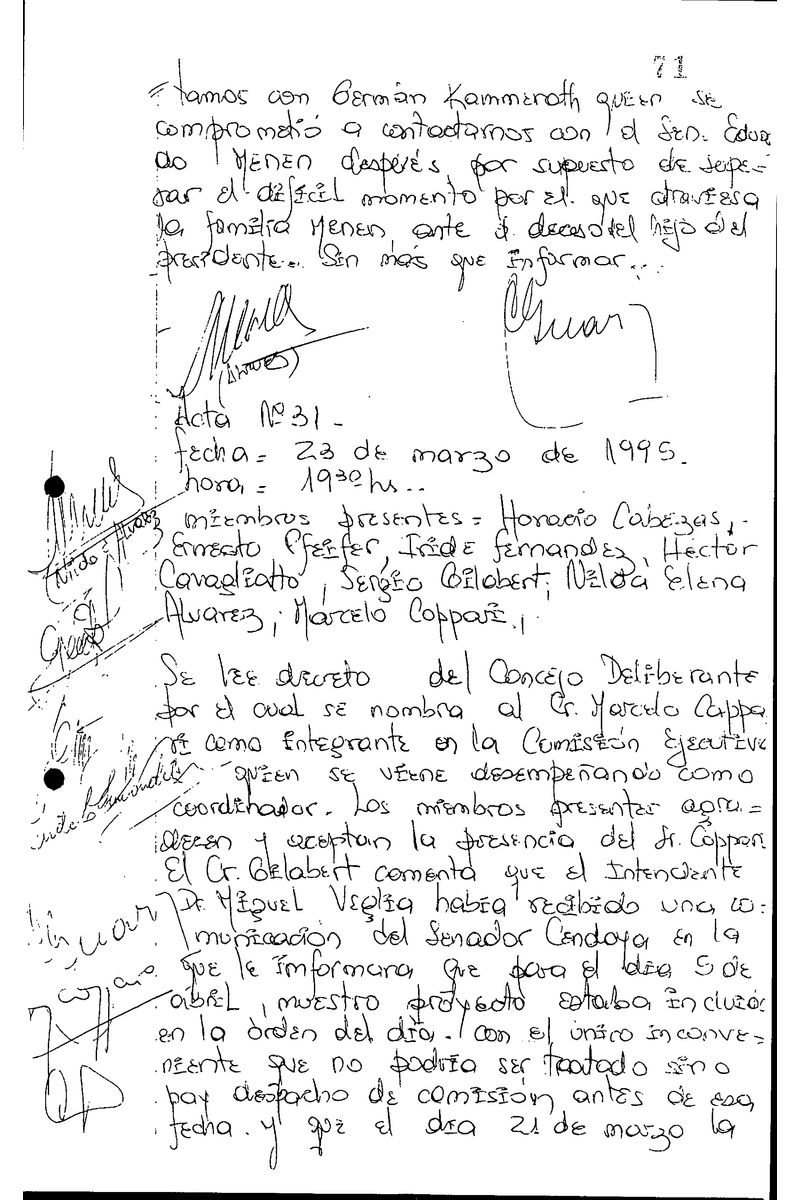 71
tamos con Germán Kammerath quien se
comprometió a contactarnos con el Sen. Edua
do Menem después, por supuesto de supe-
rar el difícil momento por el que atraviesa
la familia Menem ante el deceso del hijo del
presidente.. Sin más que informar...
(Alvarez)
Acta Nº 31 -
fecha = 23 de marzo de 1995.
hora = 19³⁰ hs..
miembros presentes = Horacio Cabezas,
Ernesto Pfeifer, Iride Fernandez, Héctor
Cavagliatto, Sergio Gilabert, Nilda Elena
Alvarez, Marcelo Coppari,
(Nilda E Alvarez)
Se lee decreto del Concejo Deliberante
por el cual se nombra al Cr. Marcelo Coppa
ri como integrante en la Comisión Ejecutiva
quien se viene desempeñando como
coordinador. Los miembros presentes agra=
decen y aceptan la presencia del Sr. Coppari
El Cr. Gilabert comenta que el Intendente
Dr. Miguel Veglia había recibido una co-
municación del Senador Cendoya en la
que le informara que para el día 5 de
abril, nuestro proyecto estaba incluído
en la orden del día. Con el único inconve-
niente que no podría ser tratado si no
hay despacho de comisión antes de esa
fecha. y que el día 21 de marzo la